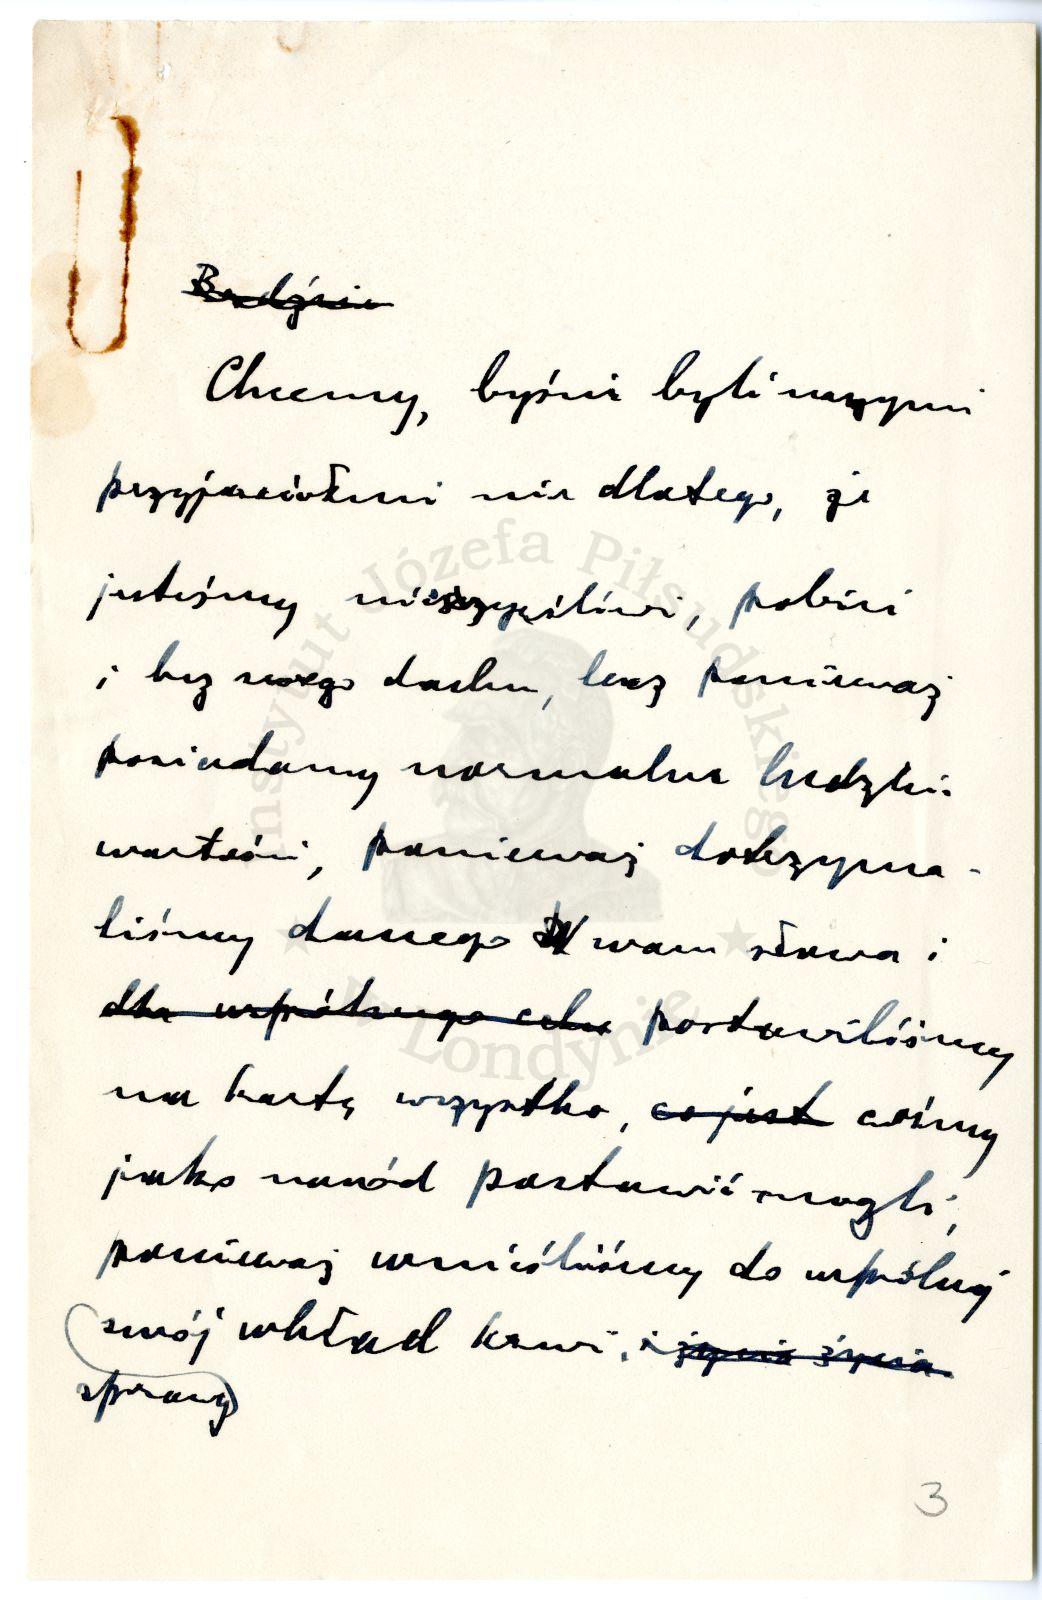 Bądźcie
Chcemy, byście byli naszymi
przyjaciółmi nie dlatego, że
jesteśmy nieszczęśliwi, pobici
i bez swego dachu, lecz ponieważ
posiadamy normalne ludzkie
wartości, ponieważ dotrzyma-
liśmy danego wam słowa i
dla wspólnego celu postawiliśmy
na kartę wszystko, co jest cośmy
jako naród postawić mogli,
ponieważ wnieśliśmy do wspólnej
swój wkład krwi, i życia życia
sprawy
3
Instytut Józefa Piłsudskiego
w Londynie